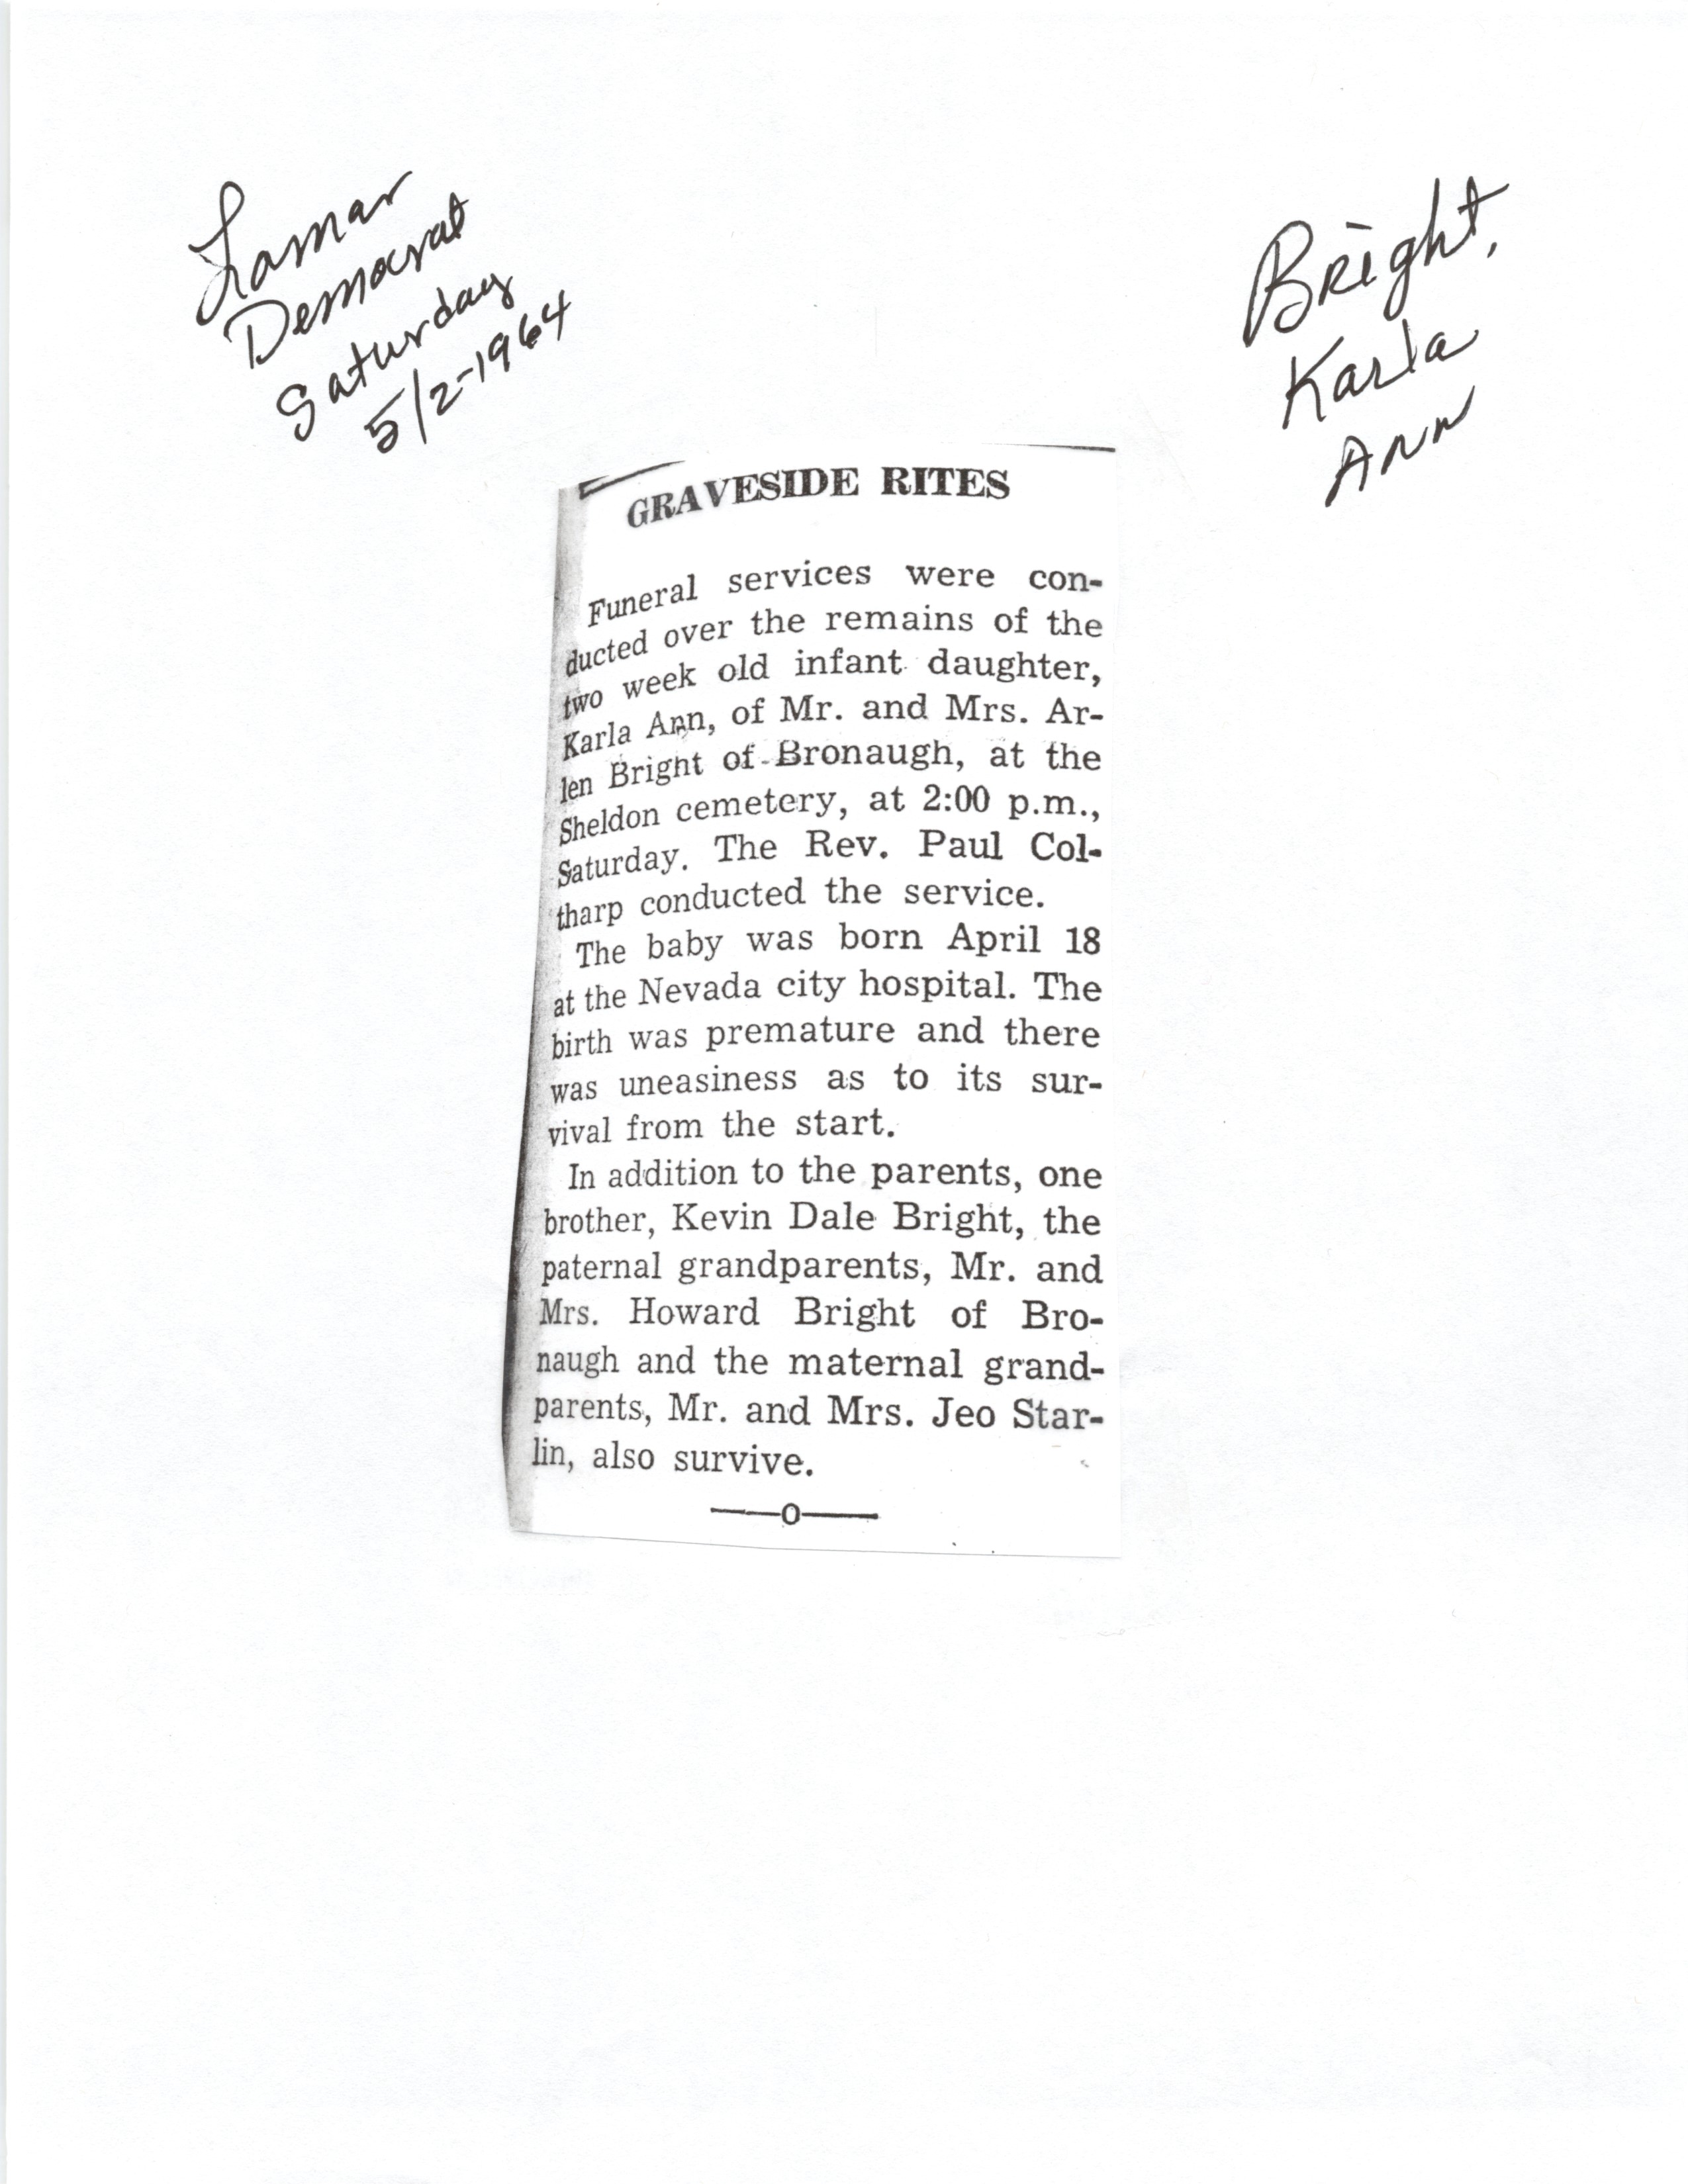 Lamar
Democrat
Saturday
5/2-1964
Bright,
Karla
Ann
GRAVESIDE RITES
Funeral services were con-
ducted over the remains of the
two week old infant daughter,
Karla Ann, of Mr. and Mrs. Ar-
len Bright of Bronaugh, at the
Sheldon cemetery, at 2:00 p.m.,
Saturday. The Rev. Paul Col-
tharp conducted the service.
The baby was born April 18
at the Nevada city hospital. The
birth was premature and there
was uneasiness as to its sur-
vival from the start.
In addition to the parents, one
brother, Kevin Dale Bright, the
paternal grandparents, Mr. and
Mrs. Howard Bright of Bro-
naugh and the maternal grand-
parents, Mr. and Mrs. Jeo Star-
lin, also survive.
—o—